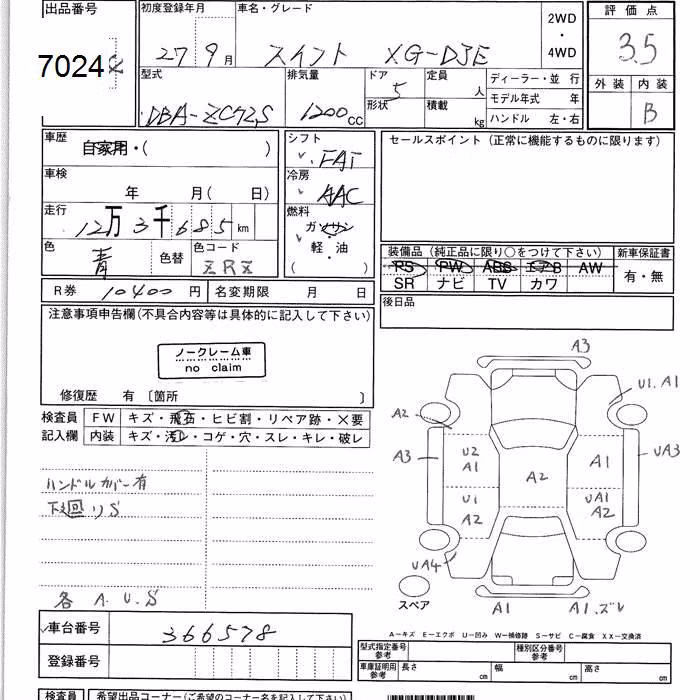 出品番号
7024
初度登録年月
27 9月
車名・グレード
スイフト XG-DJE
2WD
・
4WD
評価点
3.5
外装 内装
B
型式
DBA-ZC72S
排気量
1200cc
ドア 5
形状
定員 人
積載 kg
ディーラー・並行
モデル年式 年
ハンドル 左・右
車歴
自家用・( )
車検
年 月( 日)
走行
12万3千685km
色
青
色替
色コード
ZRZ
シフト
FAT
冷房
AAC
燃料
ガソリン
軽・油
( )
セールスポイント(正常に機能するものに限ります)
装備品(純正品に限り○をつけて下さい)
新車保証書
PS PW ABS エアB AW
SR ナビ TV カワ
有・無
R券 10400円
名変期限 月 日
後日品
注意事項申告欄(不具合内容等は具体的に記入して下さい)
ノークレーム車
no claim
修復歴 有〔箇所 〕
検査員
記入欄
FW キズ・飛石・ヒビ割・リペア跡・×要
内装 キズ・汚レ・コゲ・穴・スレ・キレ・破レ
ハンドルカバー有
下廻りS
各 A.U.S
A3
U1.A1
A2
A3
U2
A1
A2
A1
UA3
U1
A2
UA1
A2
UA4
スペア
A1
A1.ズレ
A-キズ E-エクボ U-凹み W-補修跡 S-サビ C-腐食 XX-交換済
車台番号
366578
登録番号
型式指定番号
参考
種別区分番号
参考
車庫証明用
参考
長さ cm
幅 cm
高さ cm
検査員
希望出品コーナー(ご希望のコーナー名を記入して下さい)